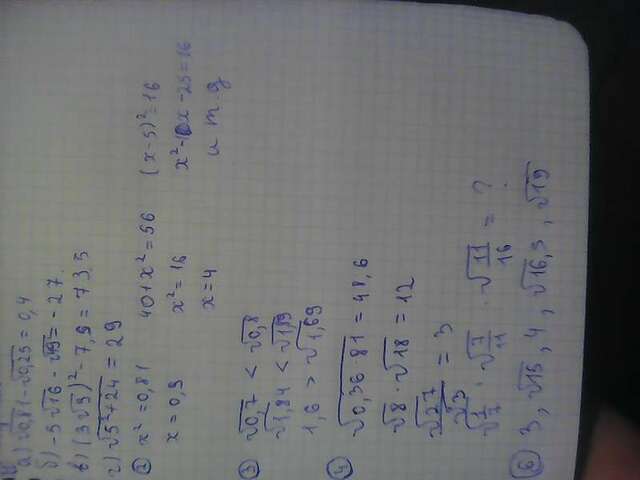 а) √0,81-√0,25 = 0,4
б) -3√16 - √49 = -27.
в) (3√9)² - 7,5 = 73,5
г) √5²+24 = 29
② x² = 0,81 40+x² = 56 (x-5)² = 16
x = 0,9 x² = 16 x²-10x-25 = 16
x = 4 и т.д
③ √0,7 < √0,8
√1,84 < √1,19
1,6 > √1,69
④ √0,36 81 = 48,6
√8 · √18 = 12
√27/√3 = 3
√7/11 · √11/16 = ?
⑥ 3, √15, 4, √16,3, √19